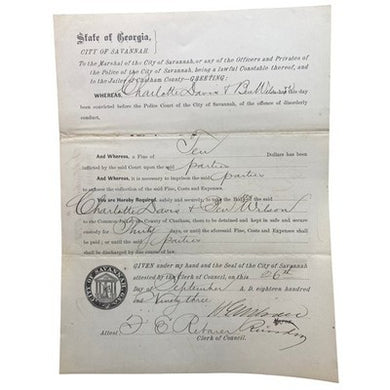 State of Georgia,
CITY OF SAVANNAH.
To the Marshal of the City of Savannah, or any of the Officers and Privates of
the Police of the City of Savannah, being a lawful Constable thereof, and
to the Jailer of Chatham County—GREETING:
WHEREAS, Charlotte Davis & Ben Wilson this day
been convicted before the Police Court of the City of Savannah, of the offence of disorderly
conduct.
And Whereas, a Fine of Ten Dollars has been
inflicted by the said Court upon the said parties
And Whereas, it is necessary to imprison the said parties
to enforce the collection of the said Fine, Costs and Expenses
You are Hereby Required, safely and securely, to take the Bodies of the said
Charlotte Davis & Ben Wilson
to the Common Jail of the County of Chatham, and there to be kept in safe and secure
custody for Thirty days, or until the aforesaid Fine, Costs and Expenses
shall be paid; or until the said parties
shall be discharged by due course of law.
GIVEN under my hand and the Seal of the City of Savannah
attested by the Clerk of Council, on this 26th
Day of September A. D. eighteen hundred
and Ninety three.
Mayor
Attest F E Rebarer
Clerk of Council.
CITY OF SAVANNAH